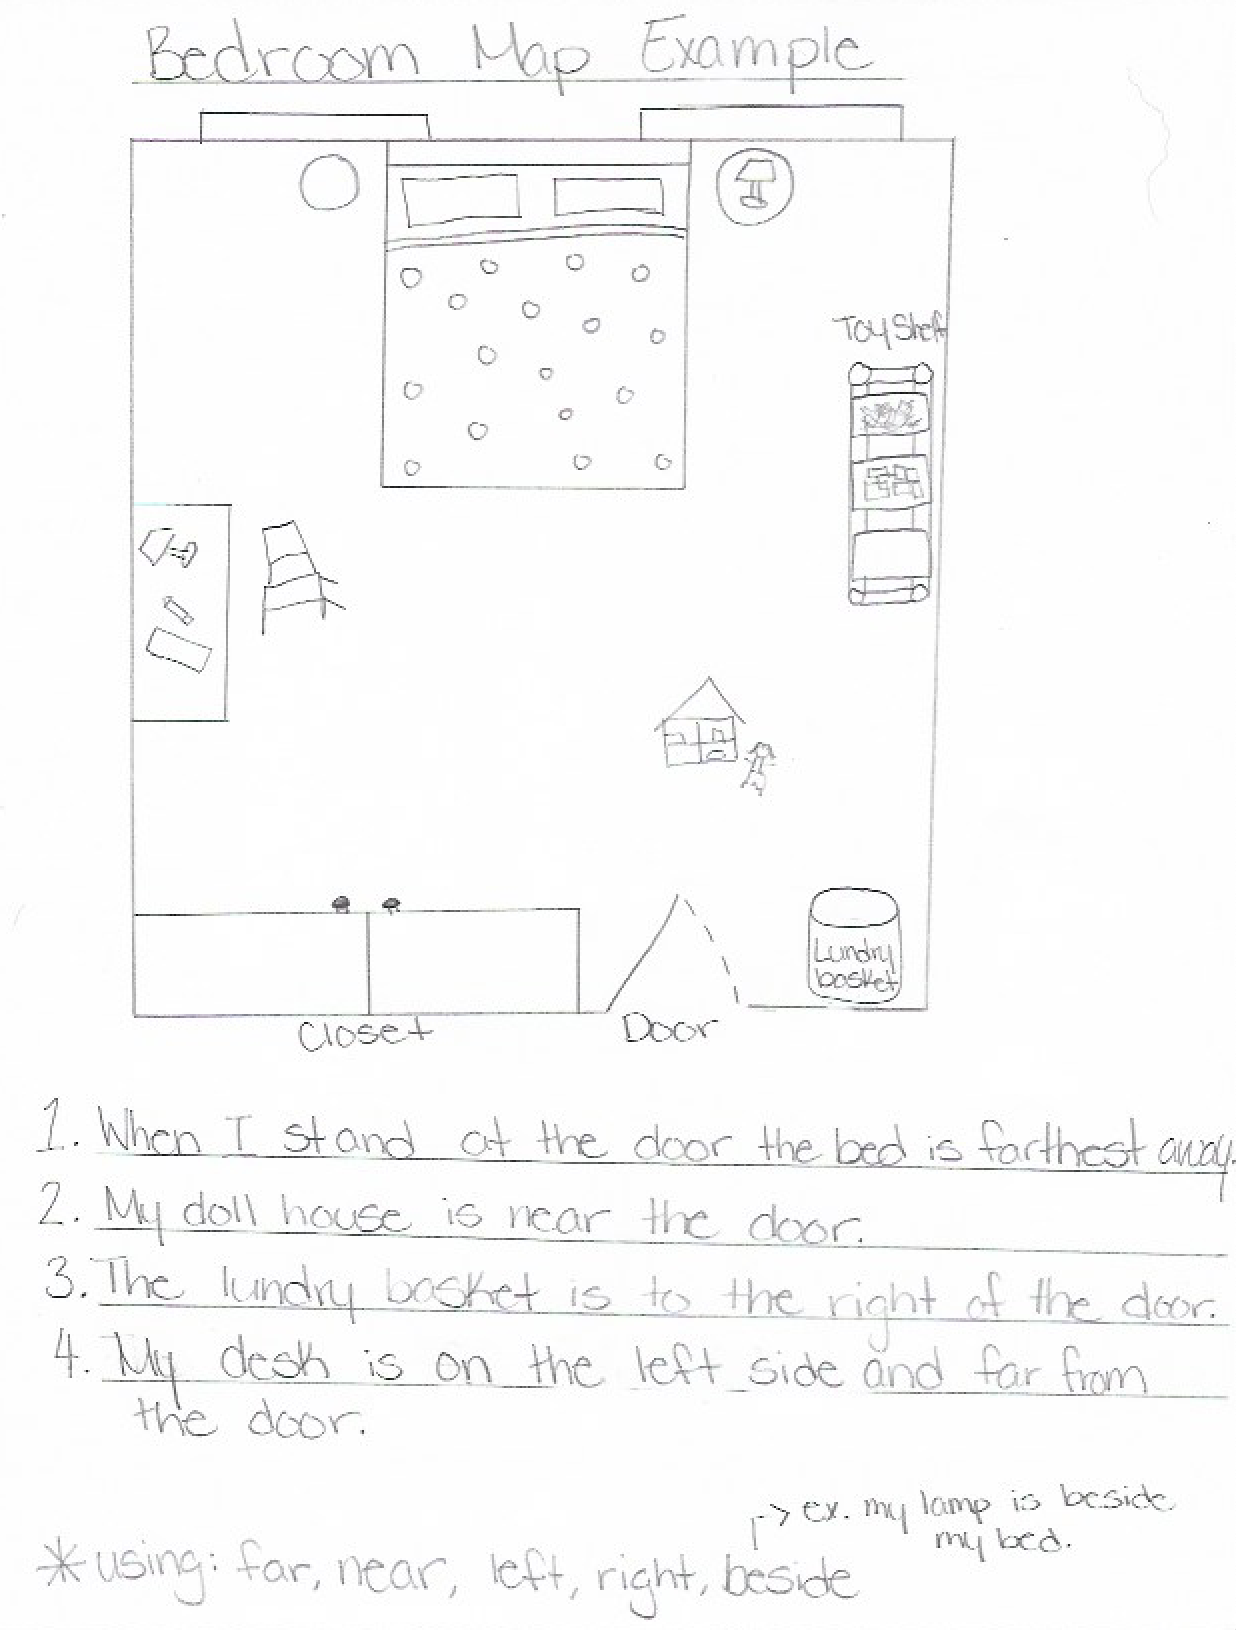 Bedroom Map Example
Toy Shelf
Lundry
basket
Closet
Door
1. When I stand at the door the bed is farthest away.
2. My doll house is near the door.
3. The lundry basket is to the right of the door.
4. My desk is on the left side and far from
the door.
-> ex. my lamp is beside
my bed.
* using: far, near, left, right, beside